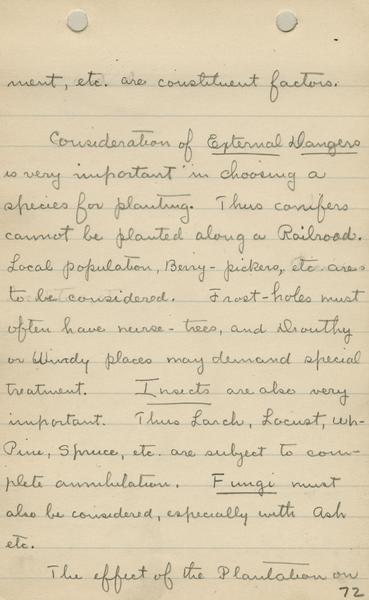 ment, etc. are constituent factors.
Consideration of External Dangers
is very important in choosing a
species for planting. Thus conifers
cannot be planted along a Railroad.
Local population, Berry-pickers, etc. are
to be considered. Frost-holes must
often have nurse-trees, and Drouthy
or Windy places may demand special
treatment. Insects are also very
important. Thus Larch, Locust, Wh-
Pine, Spruce, etc. are subject to com-
plete annihilation. Fungi must
also be considered, especially with Ash
etc.
The effect of the Plantation on
72